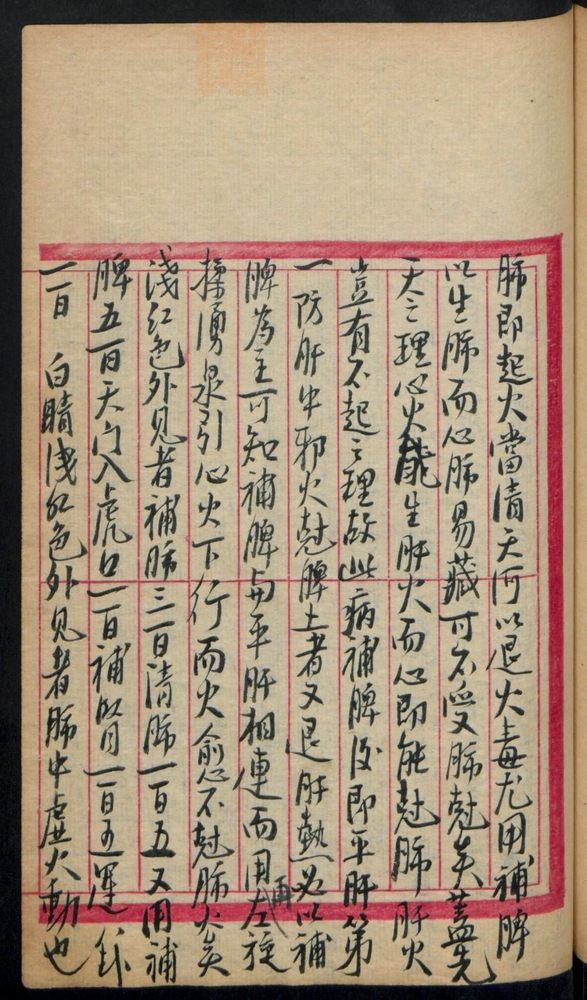 肺即起火當清天河以退火毒尤用補脾
以生肺而心肺易藏可不受肺尅矣蓋先
天之理心火能生肝火而心即能尅肺肝火
豈有不起之理故此病補脾後即平肝第
一防肝中邪火尅脾土者又退肝熱必以補
脾為主可知補脾与平肝相連而用再左旋
揉湧泉引心火下行而火愈不尅肺火矣
淺紅色外見者補肺三百清肺一百五又用補
脾五百天门入虎口一百補腎一百五運八卦
一百 白睛淺紅色外見者肺中虛火動也